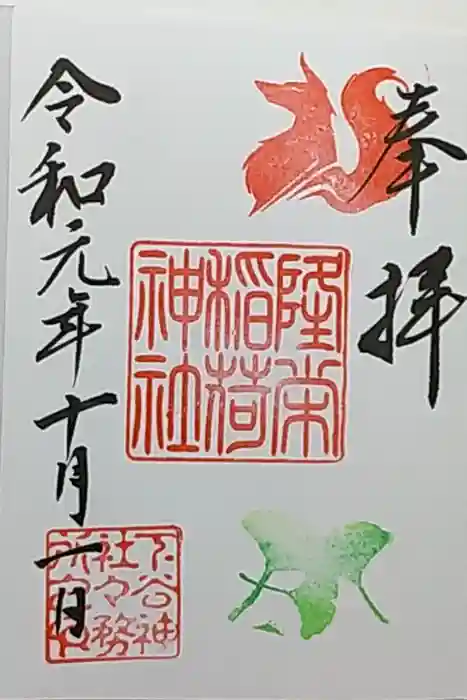 奉拝
隆栄
稲荷
神社
令和元年十月一日
下谷神
社々務
所之印